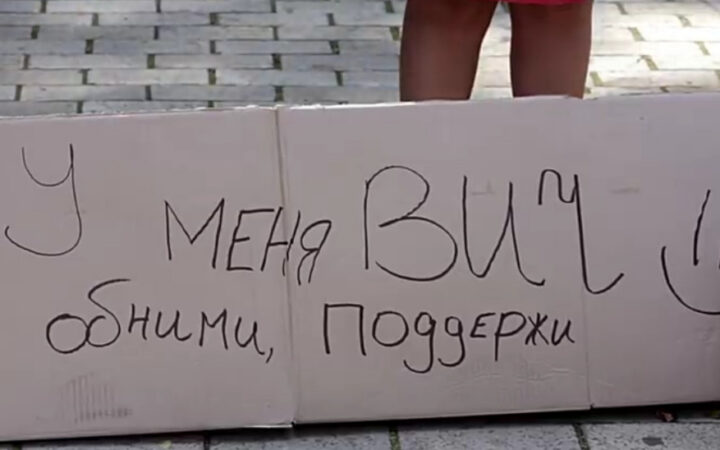 У меня ВИЧ
обними, поддержи